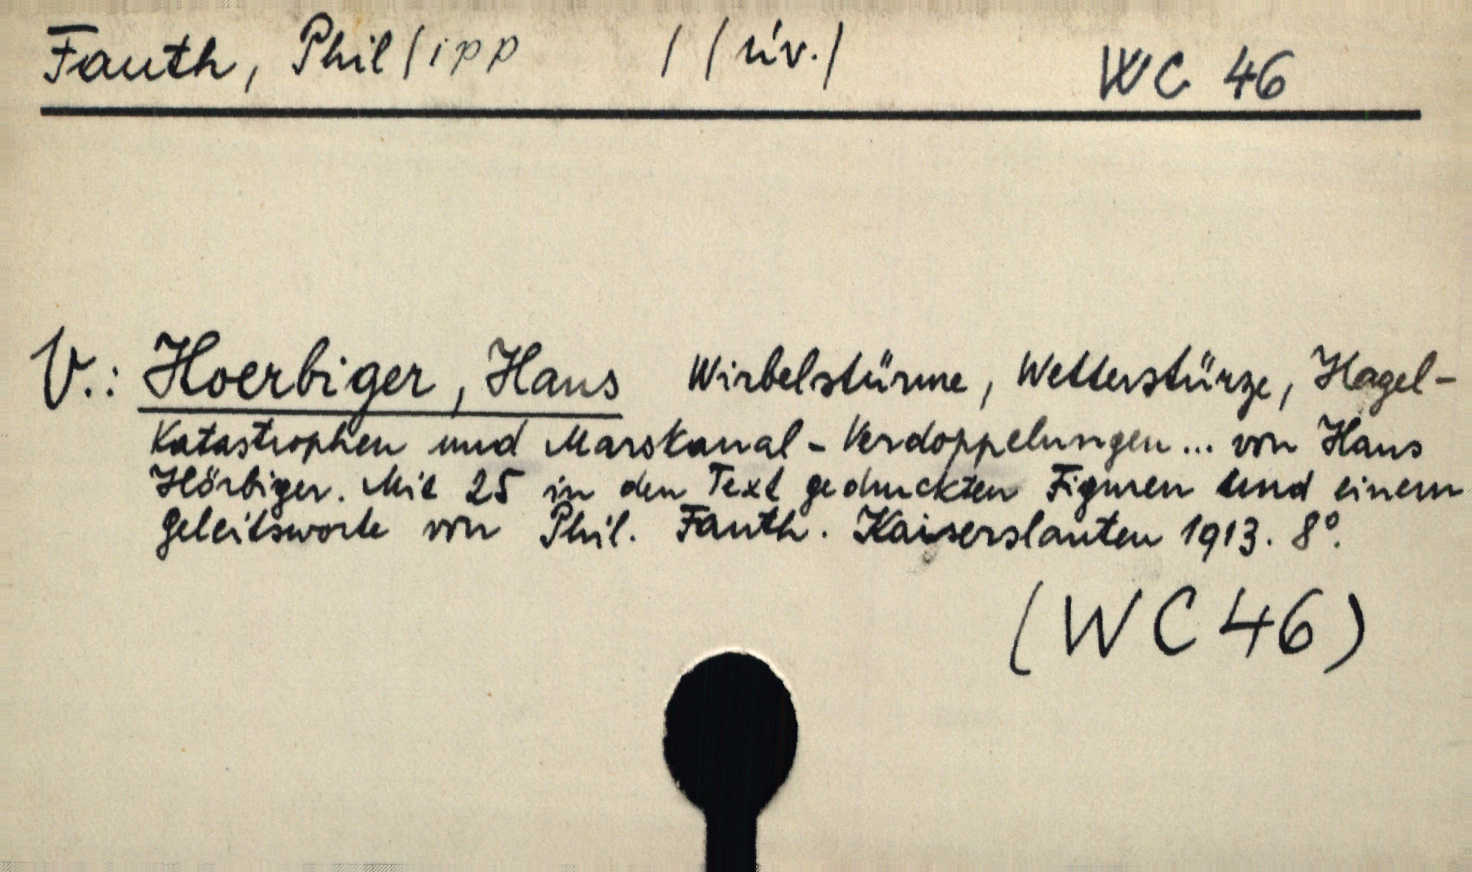 Fauth, Phil/ipp / /úv./ WC 46
V.: Hoerbiger, Hans Wirbelstürme, Wetterstürze, Hagel-
Katastrophen und Marskanal-Verdoppelungen... von Hans
Hörbiger. Mit 25 in den Text gedruckten Figuren und einem
Geleitsworte von Phil. Fauth. Kaiserslauten 1913. 8°.
(WC46)